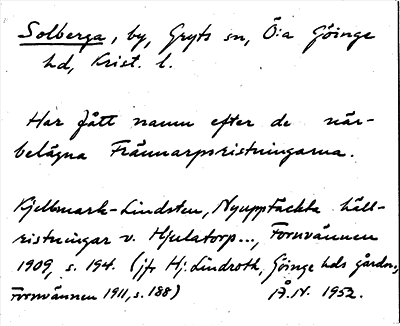 Solberga, by, Gryts sn, Ö:a Göinge
hd, Krist. l.
Har fått namn efter de när-
belägna Frännarpsristningarna.
Kjellmark-Lindsten, Nyupptäckta häll-
ristningar v. Hjulatorp..., Fornvännen
1909, s. 194. (jfr Hj. Lindroth, Göinge hds gårdsn.,
Fornvännen 1911, s. 188) Å.N. 1952.